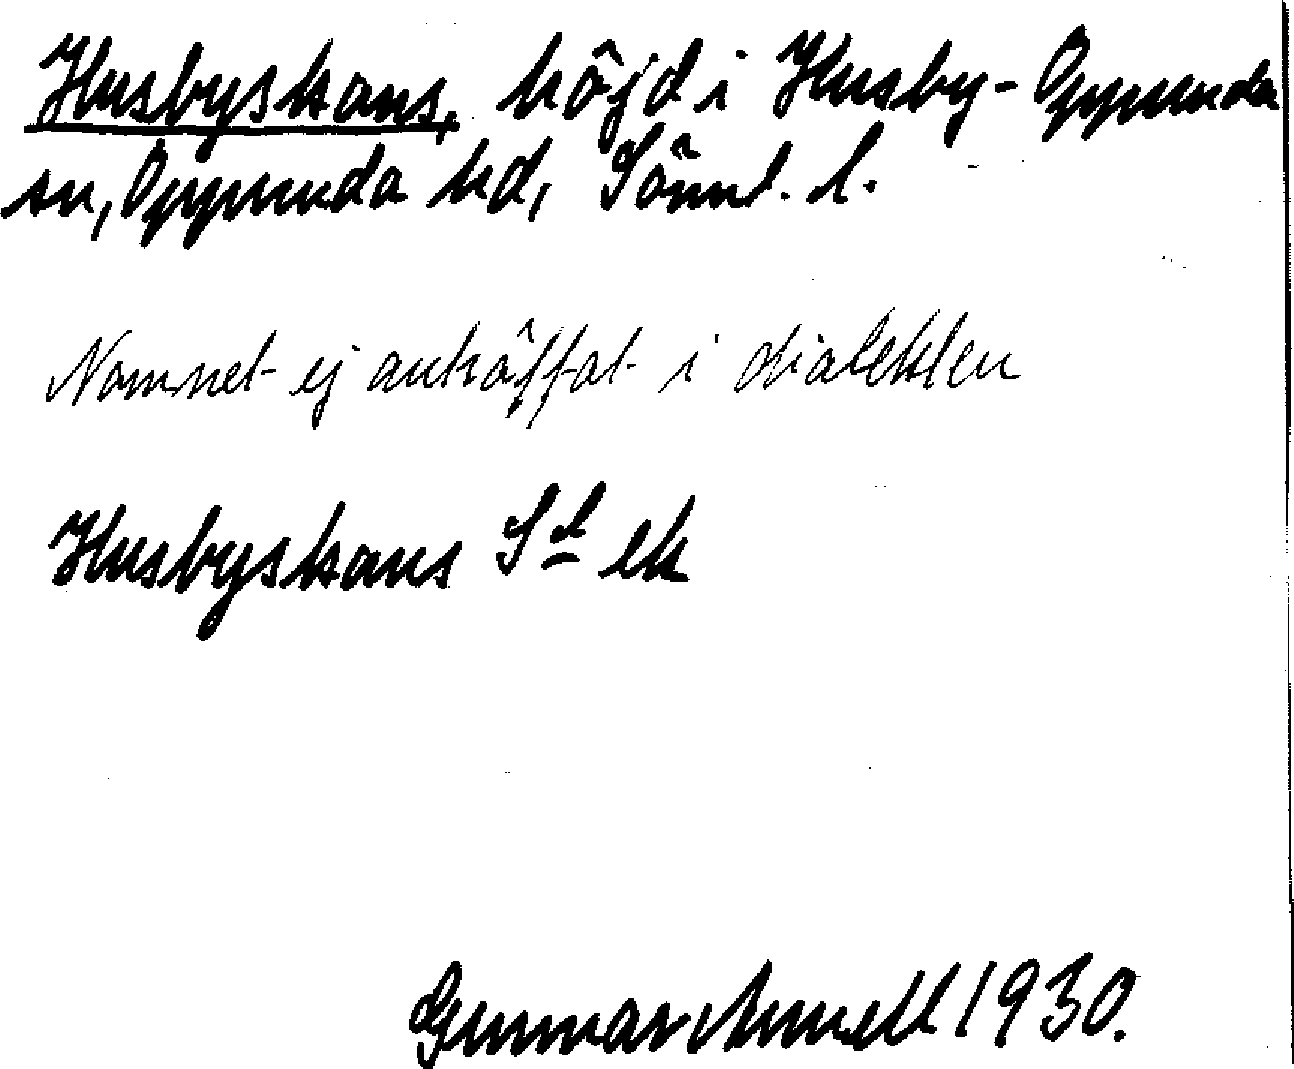 Husbyskans, höjd i Husby-Oppunda
sn, Oppunda hd, Sörml. l.
Namnet ej anträffat i dialekten
Husbyskans Sd ek
Gunnar Arnell 1930.